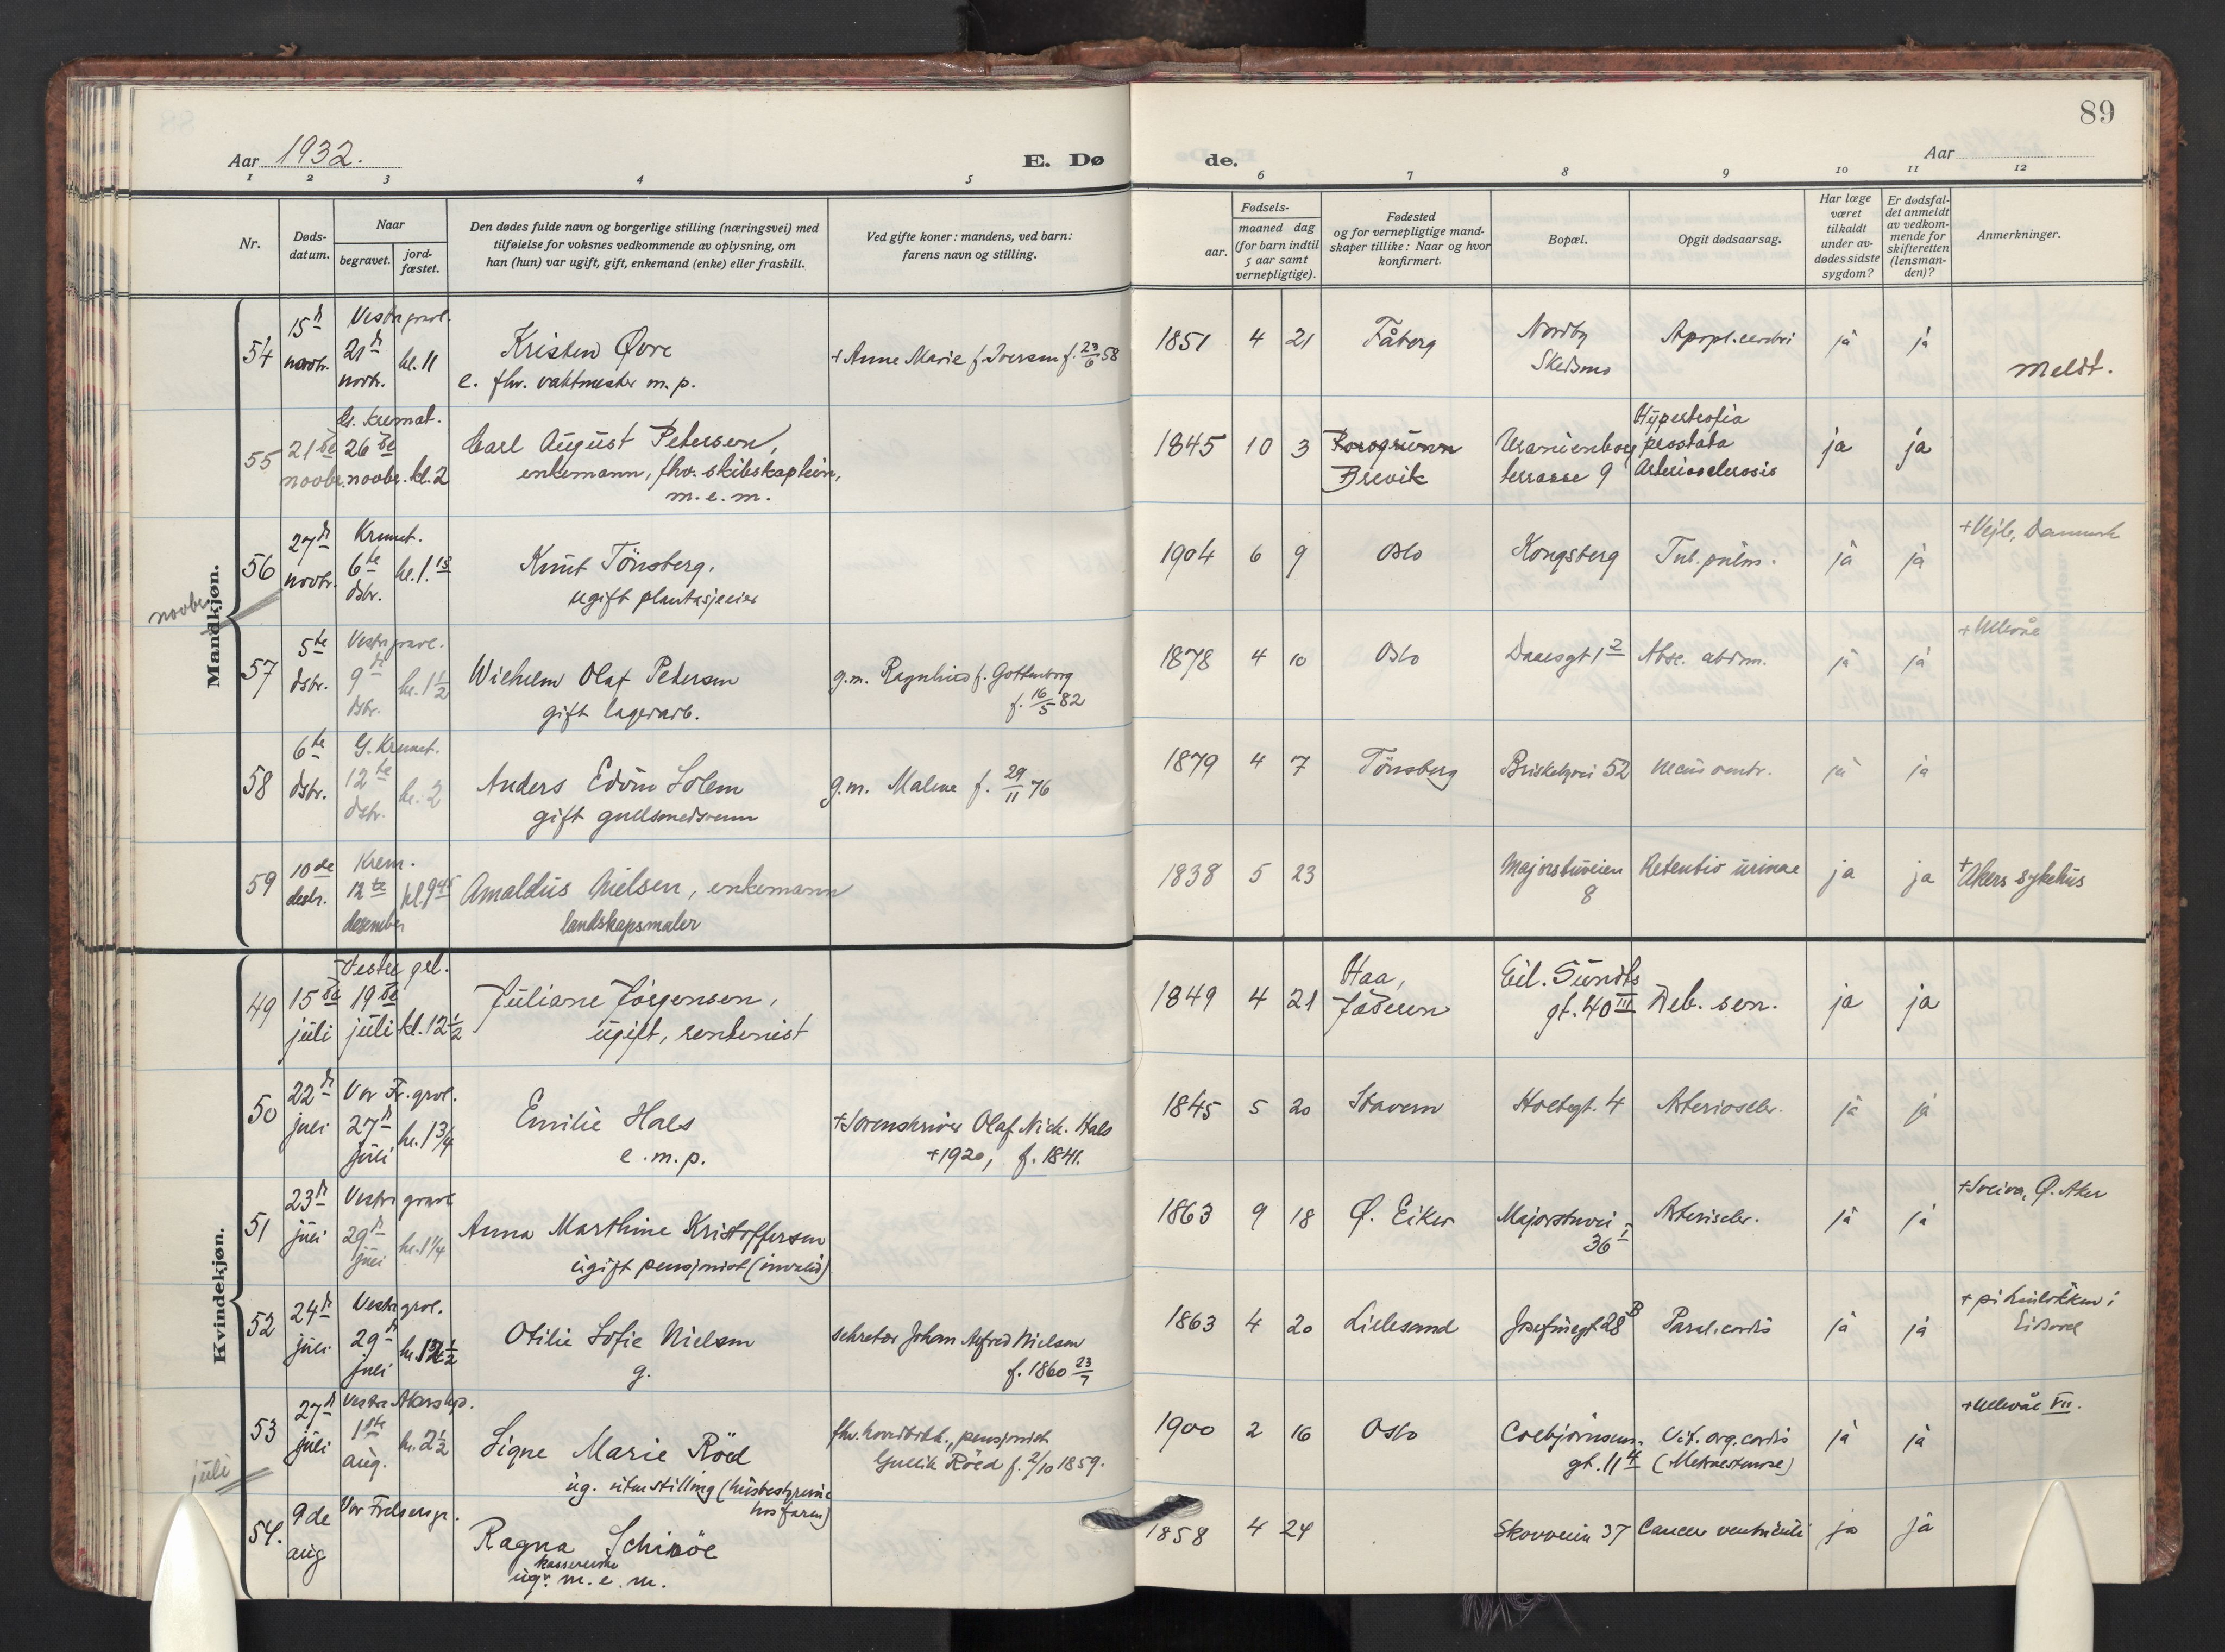 89
Aar 1932.
E. Dø
de.
Aar
1 2 3 4 5
6 7 8 9 10 11 12
Nr.
Døds-
datum.
Naar
begravet.
jord-
fæstet.
Den dødes fulde navn og borgerlige stilling (næringsvei) med
tilføielse for voksnes vedkommende av oplysning, om
han (hun) var ugift, gift, enkemand (enke) eller fraskilt.
Ved gifte koner: mandens, ved barn:
farens navn og stilling.
Fødsels-
aar.
maaned dag
(for barn indtil
5 aar samt
vernepligtige).
Fødested
og for vernepligtige mand-
skaper tillike: Naar og hvor
konfirmert.
Bopæl.
Opgit dødsaarsag.
Har læge
været
tilkaldt
under av-
dødes sidste
sygdom?
Er dødsfal-
det anmeldt
av vedkom-
mende for
skifteretten
(lensman-
den)?
Anmerkninger.
Mandkjøn.
novbr.
54 15 novbr. Vestre gravl. 21 novbr. kl. 11
Kristen Øvre
e. fhv. vaktmester m.p.
+ Anne Marie f. Iversen f. 23/6 58
1851 4 21 Fåberg
Nordby
Skedsmo
Apopl. cerebri ja ja
Meldt.
55 21de novbr. 26de novbr. kl. 2
Carl August Petersen,
enkemann, fhv. skibskaptein,
m.e.m.
1845 10 3 Porsgrunn
Brevik
Uranienborg
terrasse 9
Hypertrofia
prostata
Arteriosclerosis
ja ja
56 27 novbr. Kremat. 6te dsbr. kl. 1.15
Knut Tönsberg,
ugift plantasjeeier
1904 6 9 Oslo Kongsberg Tub. pulm. ja ja
+ Vejle, Danmark
57 5te dsbr. Vestre gravl. 9 dsbr. kl. 1 1/2
Wilhelm Olaf Petersen
gift lagerarb.
g.m. Ragnhild f. Gottenborg
f. 16/5 82
1878 4 10 Oslo Daasgt 1 2 Absc. abdom. ja ja
+ Ullevål
58 6te dsbr. G. Kremat. 12te dsbr. kl. 2
Anders Edvin Solem
gift gullsmedsvenn
g.m. Malene f. 29/11 76
1879 4 7 Tönsberg Briskebyvei 52 Ulcus ventr. ja ja
59 10de desbr. Krem. 12te desember kl. 9 45
Amaldus Nielsen, enkemann
landskapsmaler
1838 5 23
Majorstuveien
8
Retentio urinae ja ja
+ Akers sykehus
Kvindekjøn.
juli
49 15de juli Vestre grl. 19de juli kl. 12 1/2
Juliane Jörgensen,
ugift, rentenist
1849 4 21
Haa,
Jæderen
Eil. Sundts
gt. 40 III
Deb. sen. ja ja
50 22 juli Vor Fr. grvl. 27 juli kl. 1 3/4
Emilie Hals
e.m.p.
+ Sorenskriver Olaf Nick. Hals
+ 1920, f. 1841.
1845 5 20 Stavern Holtegt. 4 Arterioscler. ja ja
51 23 juli Vestre gravl. 29 juli kl. 1 1/4
Anna Marthine Kristoffersen
ugift pensjonist (invalid)
1863 9 18 Ø. Eiker
Majorstuvei
36 I
Arterioscler. ja ja
52 24 juli Vestre grvl. 29 juli
Otilie Sofie Nielsen
g.
sekretær Johan Alfred Nielsen
f. 1860 23/7
1863 4 20 Lillesand Josefinegt 28 B Paral. cordis ja ja
53 27 juli Vestre Akers kgd. 1ste aug. kl. 2 1/2
Signe Marie Röed
ug. uten stilling (husbestyrerinne
hos faren)
pensjonist
Gullik Röed f. 2/10 1859.
1900 2 16 Oslo
Colbjørnsens
gt. 11
Vit. org. cordis ja ja
+ Ullevål VII.
54. 9de aug Vor Frelsersgr.
Ragna Schiröe
kassererske
ug. m.e.m.
1858 4 24 Skovveien 37 Cancer ventriculi ja ja